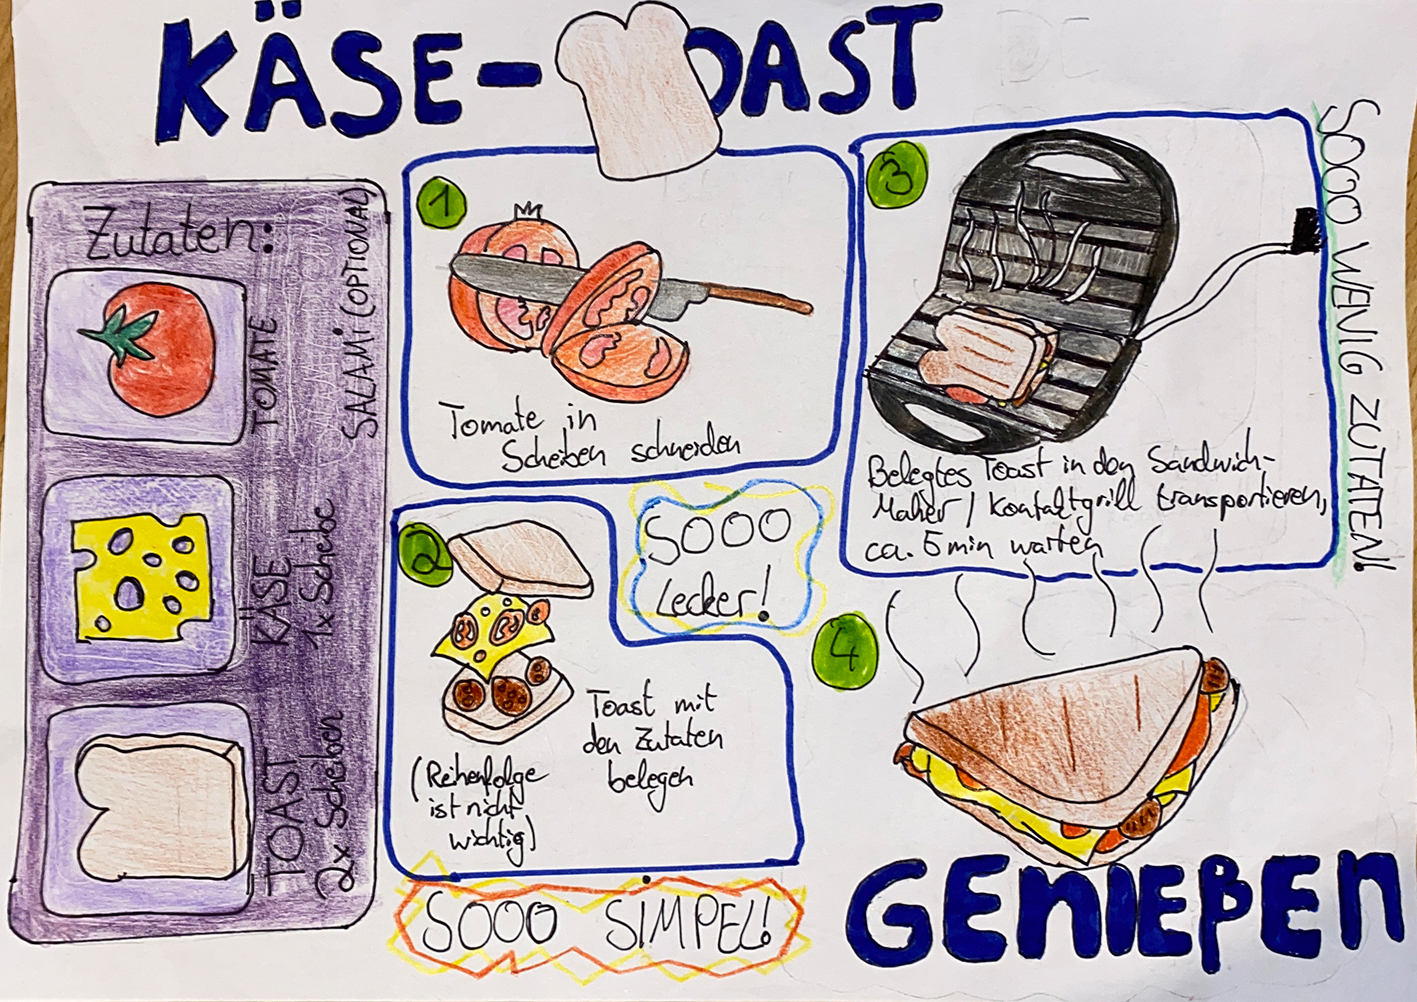 KÄSE-TOAST
Zutaten:
TOMATE
SALAMI (OPTIONAL)
KÄSE
1x Scheibe
TOAST
2x Scheiben
1
Tomate in
Scheiben schneiden
2
Toast mit
den Zutaten
belegen
(Reihenfolge
ist nicht
wichtig)
SOOO
Lecker!
3
Belegtes Toast in den Sandwich-
Maker / Kontaktgrill transportieren,
ca. 5 min warten
SOOO WENIG ZUTATEN!
4
GENIEßEN
SOOO SIMPEL!